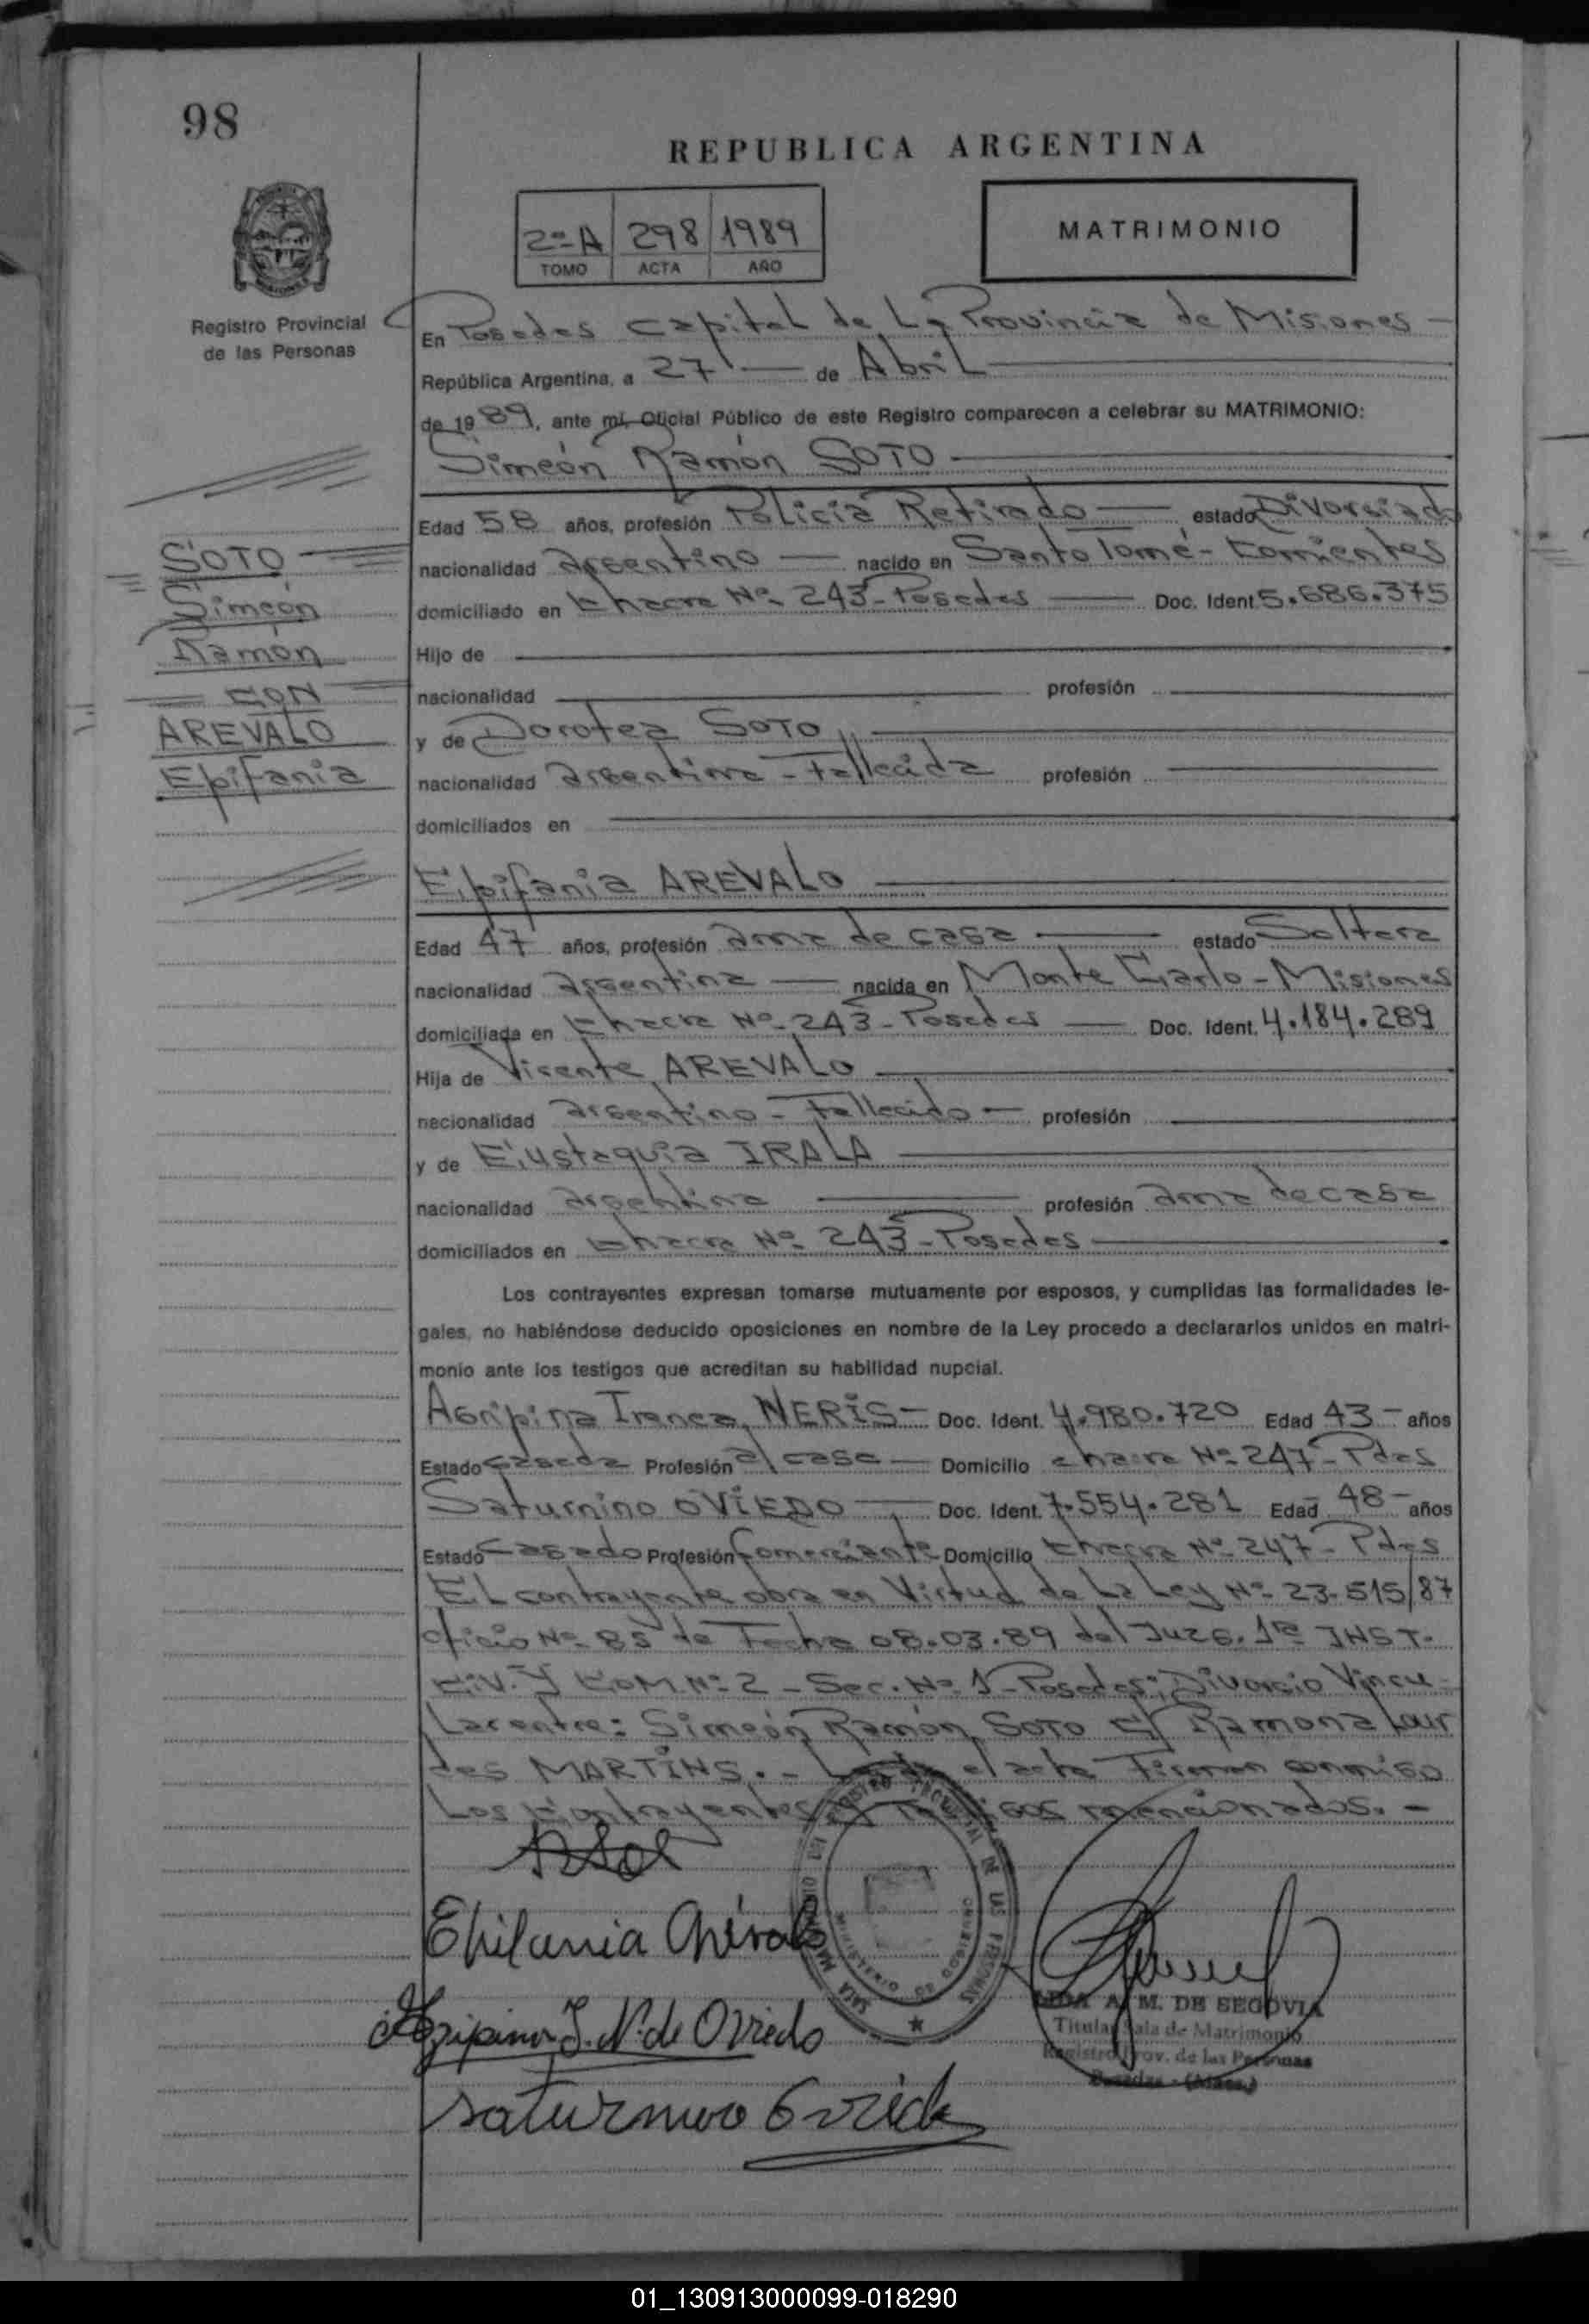 98
REPUBLICA ARGENTINA
2º-A 298 1989
TOMO ACTA AÑO
MATRIMONIO
Registro Provincial
de las Personas
En Posadas Capital de La Provincia de Misiones -
República Argentina, a 27 de Abril
de 1989, ante mí, Oficial Público de este Registro comparecen a celebrar su MATRIMONIO:
Simeón Ramón SOTO
Edad 58 años, profesión Policia Retirado estado Divorciado
nacionalidad argentino nacido en Santo Tomé - Corrientes
domiciliado en Chacra Nº 243 - Posadas Doc. Ident. 5.686.375
Hijo de
nacionalidad profesión
y de Dorotea SOTO
nacionalidad argentina - Fallecida profesión
domiciliados en
SOTO
Simeón
Ramón
CON
AREVALO
Epifania
Epifania AREVALO
Edad 47 años, profesión ama de casa estado Soltera
nacionalidad argentina nacida en Monte Carlo - Misiones
domiciliada en Chacra Nº 243 - Posadas Doc. Ident. 4.184.289
Hija de Vicente AREVALO
nacionalidad argentino - Fallecido - profesión
y de Eustaquia IRALA
nacionalidad argentina profesión ama de casa
domiciliados en Chacra Nº 243 - Posadas
Los contrayentes expresan tomarse mutuamente por esposos, y cumplidas las formalidades le-
gales, no habiéndose deducido oposiciones en nombre de la Ley procedo a declararlos unidos en matri-
monio ante los testigos que acreditan su habilidad nupcial.
Agripina Irenea NERIS - Doc. Ident. 4.980.720 Edad 43 - años
Estado casada Profesión a/ casa Domicilio chacra Nº 247 - Pdas
Saturnino OVIEDO Doc. Ident. 7.554.281 Edad 48 - años
Estado Casado Profesión Comerciante Domicilio Chacra Nº 247 - Pdas
El contrayente obra en Virtud de La Ley Nº 23.515/87
oficio Nº 85 de Fecha 08.03.89 del Juzg. 1ra INST.
CIV. Y COM. Nº 2 - Sec. Nº 1 - Posadas; Divorcio Vincu-
lar entre: Simeón Ramón SOTO c/ Ramona Lour
des MARTINS. - el acta Firman conmigo
Los Contrayentes y mencionados. -
Epifania Arévalo
Agripina I. N. de Oviedo
Saturnino Oviedo
A. M. DE SEGOVIA
Titular Sala de Matrimonio
Registro Prov. de las Personas
Posadas - (Mnes.)
01_130913000099-018290